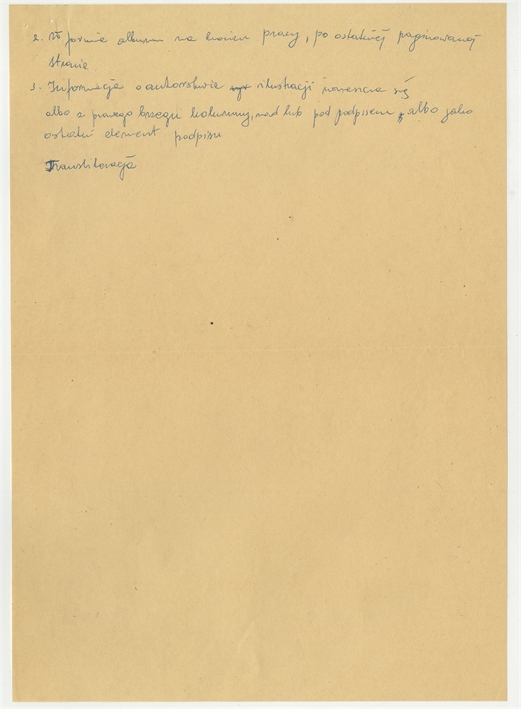 2. W formie albumu na końcu pracy, po ostatniej paginowanej
stronie
3. Informacje o autorstwie ilustracji zamieszcza się
albo z prawego brzegu kolumny, nad lub pod podpisem, albo jako
ostatni element podpisu
Transliteracja